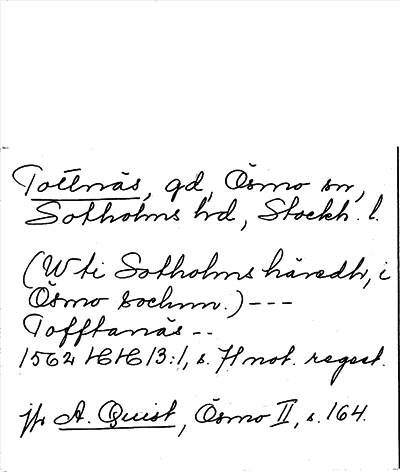 Tottnäs, gd, Ösmo sn,
Sotholms hd, Stockh. l.
(W ti Sotholms häredh, i
Ösmo sochnn.) ---
Tofftanäs --
1562 HH 13:1, s. 71 not. regest.
jfr A. Quist, Ösmo II, s. 164.